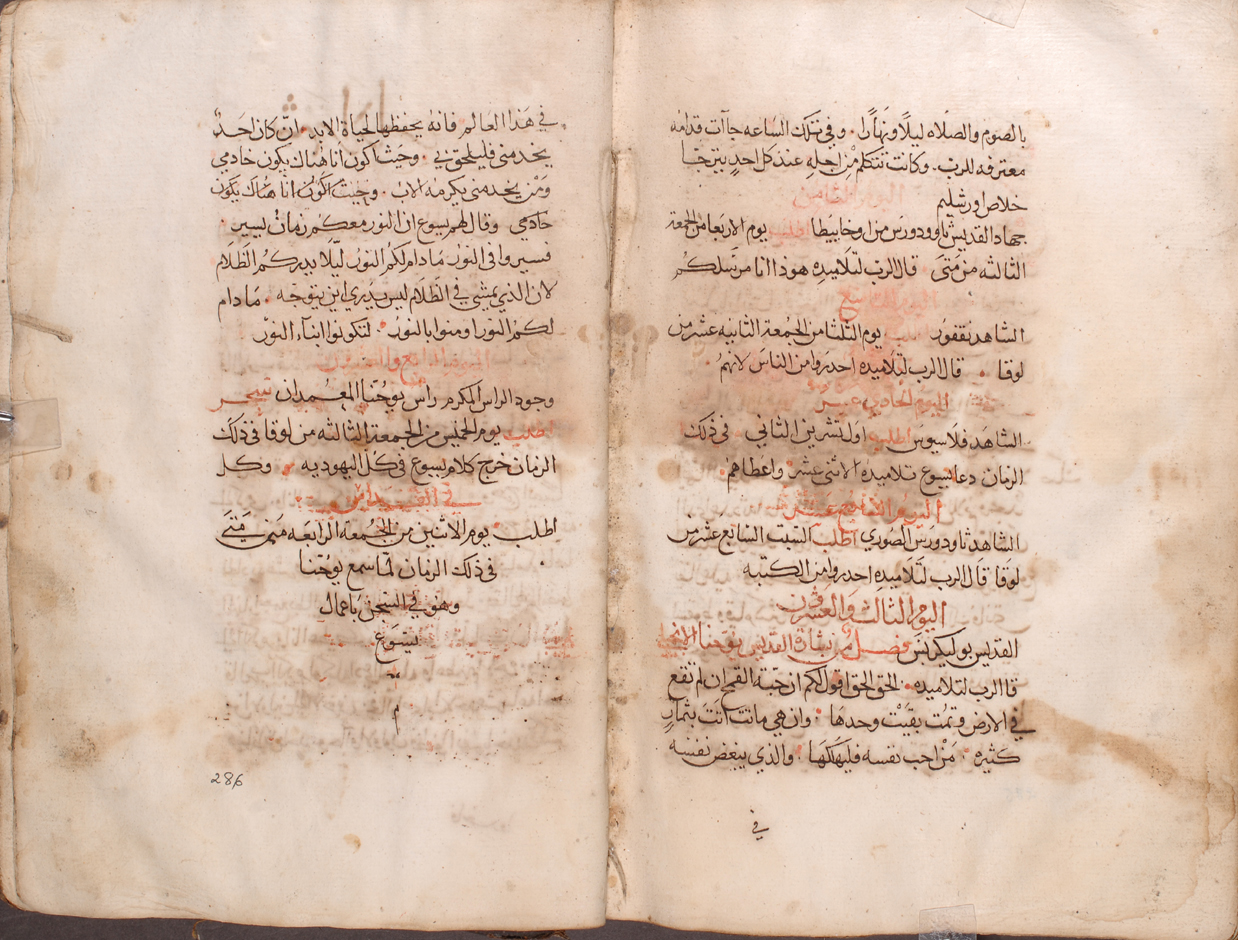 بالصوم والصلاه ليلًا ونهارًا. وفي تلك الساعه جآت قدامه
معترفه للرب. وكانت تتكلم من اجله عند كل احد يترجا
خلاص اورشليم
اليوم الثامن
جهاد القديس ثاوودورس اطلب يوم الاربعا من الجمعة
الثالثه من متى قال الرب لتلاميذه هوذا انا مرسلكم
اليوم التاسع
الشاهد نقفور اطلب يوم الثلثا من الجمعة الثانيه عشر من
لوقا. قال الرب لتلاميذه احدروا من الناس لانهم
اليوم الحادي عشر
الشاهد فلاسيوس اطلب اول تشرين الثاني في ذلك
الزمان دعا يسوع تلاميذه الاثنى عشر واعطاهم
اليوم السابع عشر
الشاهد ثاودورس الصوري اطلب السبت السابع عشر من
لوقا قال الرب لتلاميذه احدروا من الكتبه
اليوم الثالث والعشرون
القديس بوليكربس فصل من بشارة القديس يوحنا الانجيلي
قا الرب لتلاميذه. الحق الحق اقول لكم ان حبة القمح ان لم تقع
في الارض وتمت بقيت وحدها. وان هي ماتت اتت بثمار
كثيره. من احب نفسه فليهلكها. والذي يبغض نفسه
في
في هذا العالم فانه يحفظها لحياة الابد. ان كان احد
يخدمني فليلحق بي. وحيث اكون انا هناك يكون خادمي
ومن يخدمني يكرمه الاب. وحيث اكون انا هناك يكون
خادمي وقال لهم يسوع ان النور معكم زمان يسير.
فسيروا في النور ما دام لكم النور ليلا يدرككم الظلام
لان الذي يمشي في الظلام ليس يدري اين يتوجه. ما دام
لكم النور اومنوا بالنور. لتكونوا ابناء النور
اليوم الرابع والعشرون
وجود الراس المكرم راس يوحنا المعمدان سحر
اطلب يوم الخميس من الجمعة الثالثه من لوقا في ذلك
الزمان خرج كلام يسوع في كل اليهوديه. وكل
في القداس
اطلب يوم الاثنين من الجمعة الرابعه من متى
في ذلك الزمان لما سمع يوحنا
وهو في السجن باعمال
يسوع
م
286